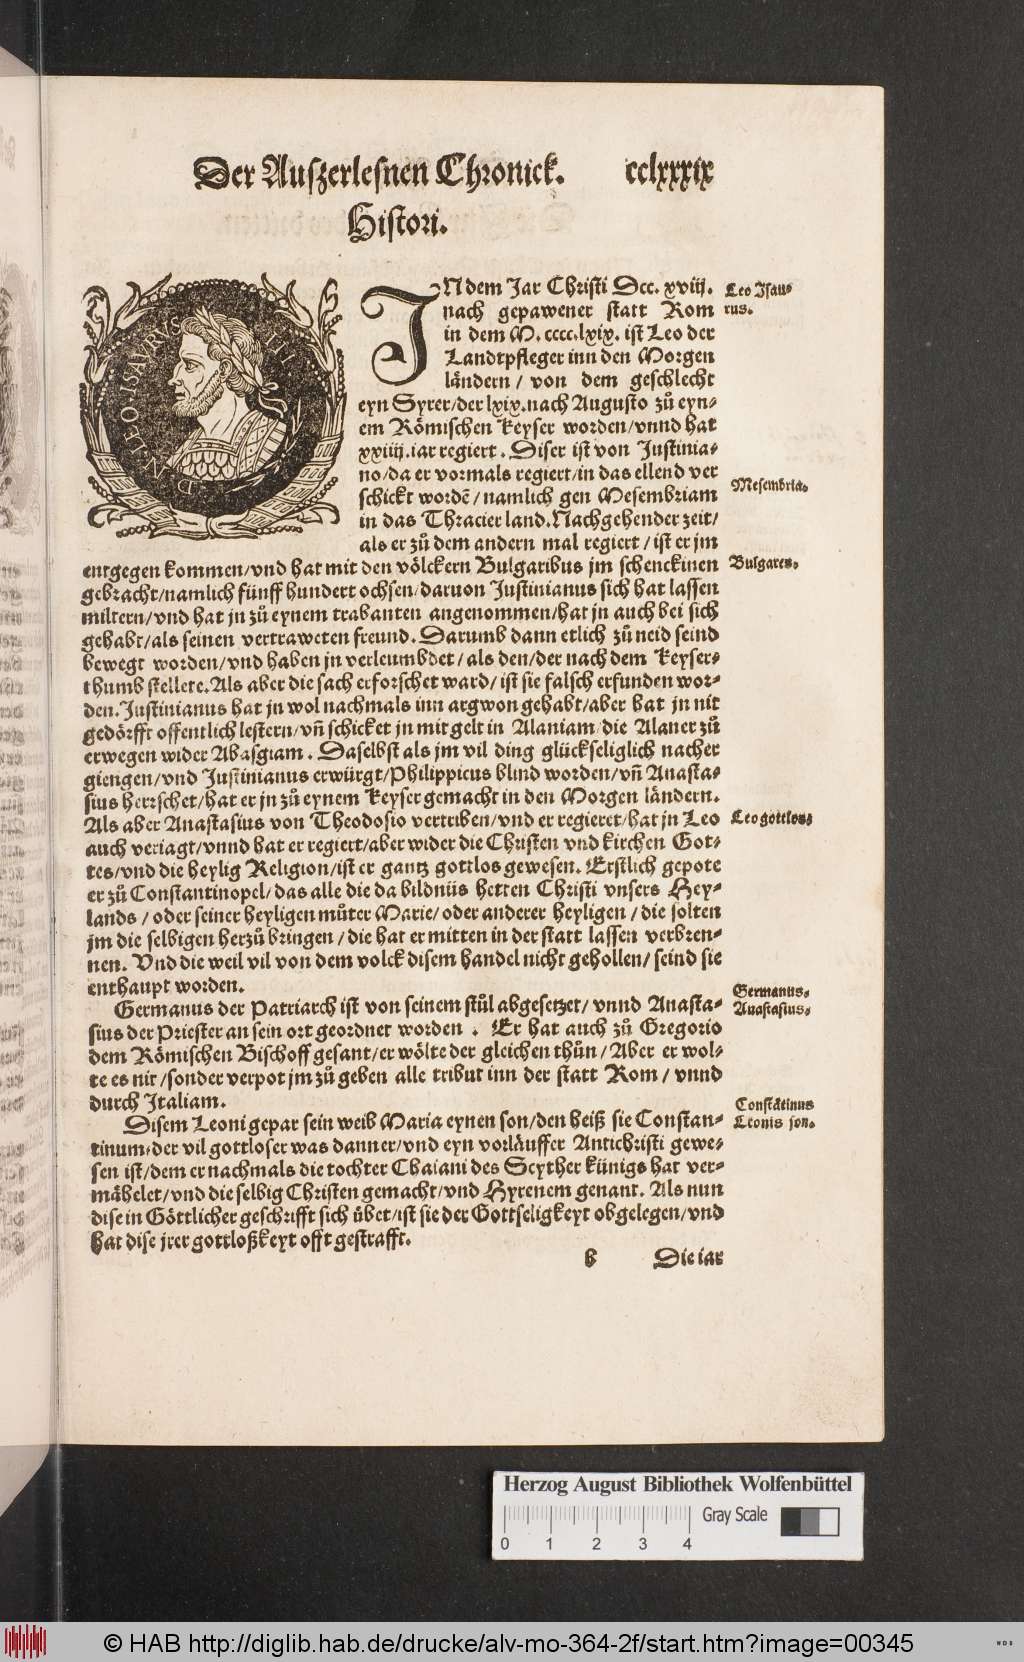 Der Auſzerleſnen Chronick. cclxxxix
Hiſtori.
D. N. LEO. ISAVRVS IIII
IN dem Jar Chriſti Dcc. xviij.
nach gepawener ſtatt Rom
in dem M. cccc. lxix. iſt Leo der
Landtpfleger inn den Morgen
ländern / von dem geſchlecht
eyn Syrer/der lxix.nach Auguſto zů eyn⸗
em Römiſchen Keyſer worden/vnnd hat
xxiiij.iar regiert. Diſer iſt von Juſtinia⸗
no/da er vormals regiert/in das ellend ver
ſchickt wordē/namlich gen Meſembriam
in das Thracier land. Nachgehender zeit/
als er zů dem andern mal regiert/iſt er jm
entgegen kommen/vnd hat mit den völckern Bulgaribus jm ſchenckinen
gebracht/namlich fünff hundert ochſen/daruon Juſtinianus ſich hat laſſen
miltern/vnd hat jn zů eynem trabanten angenommen/hat jn auch bei ſich
gehabt/als ſeinen vertraweten freund. Darumb dann etlich zů neid ſeind
bewegt worden/vnd haben jn verleumbdet/als den/der nach dem Keyſer⸗
thumb ſtellete. Als aber die ſach erforſchet ward/iſt ſie falſch erfunden wor⸗
den. Juſtinianus hat jn wol nachmals inn argwon gehabt/aber hat jn nit
gedörfft offentlich leſtern/vñ ſchicket jn mit gelt in Alaniam/die Alaner zů
erwegen wider Abasgiam. Daſelbſt als jm vil ding glückſeliglich nacher
giengen/vnd Juſtinianus erwürgt/Philippicus blind worden/vñ Anaſta⸗
ſius herrſchet/hat er jn zů eynem Keyſer gemacht in den Morgen ländern.
Als aber Anaſtaſius von Theodoſio vertriben/vnd er regieret/hat jn Leo
auch veriagt/vnnd hat er regiert/aber wider die Chriſten vnd kirchen Got⸗
tes/vnd die heylig Religion/iſt er gantz gottlos geweſen. Erſtlich gepote
er zů Conſtantinopel/das alle die da bildnüs hetten Chriſti vnſers Hey⸗
lands/oder ſeiner heyligen můter Marie/oder anderer heyligen/die ſolten
jm die ſelbigen herzů bringen/die hat er mitten in der ſtatt laſſen verbren⸗
nen. Vnd die weil vil von dem volck diſem handel nicht gehollen/ſeind ſie
enthaupt worden.
Germanus der Patriarch iſt von ſeinem ſtůl abgeſetzet/vnnd Anaſta⸗
ſius der Prieſter an ſein ort geordnet worden. Er hat auch zů Gregorio
dem Römiſchen Biſchoff geſant/er wölte der gleichen thůn/Aber er wol⸗
te es nit/ſonder verpot jm zů geben alle tribut inn der ſtatt Rom/vnnd
durch Italiam.
Diſem Leoni gepar ſein weib Maria eynen ſon/den heiß ſie Conſtan⸗
tinum/der vil gottloſer was danner/vnd eyn vorläuffer Antichriſti gewe⸗
ſen iſt/dem er nachmals die tochter Chaiani des Scyther künigs hat ver⸗
mähelet/vnd die ſelbig Chriſten gemacht/vnd Hyrenem genant. Als nun
diſe in Göttlicher geſchrifft ſich übet/iſt ſie der Gottſeligkeyt obgelegen/vnd
hat diſe jrer gottloßkeyt offt geſtrafft.
b Die iar
Leo Iſau⸗
rus.
Meſembria.
Bulgares.
Leo gottlos.
Germanus.
Anaſtaſius.
Conſtātinus
Leonis ſon.
Herzog August Bibliothek Wolfenbüttel
Gray Scale
0 1 2 3 4
© HAB http://diglib.hab.de/drucke/alv-mo-364-2f/start.htm?image=00345